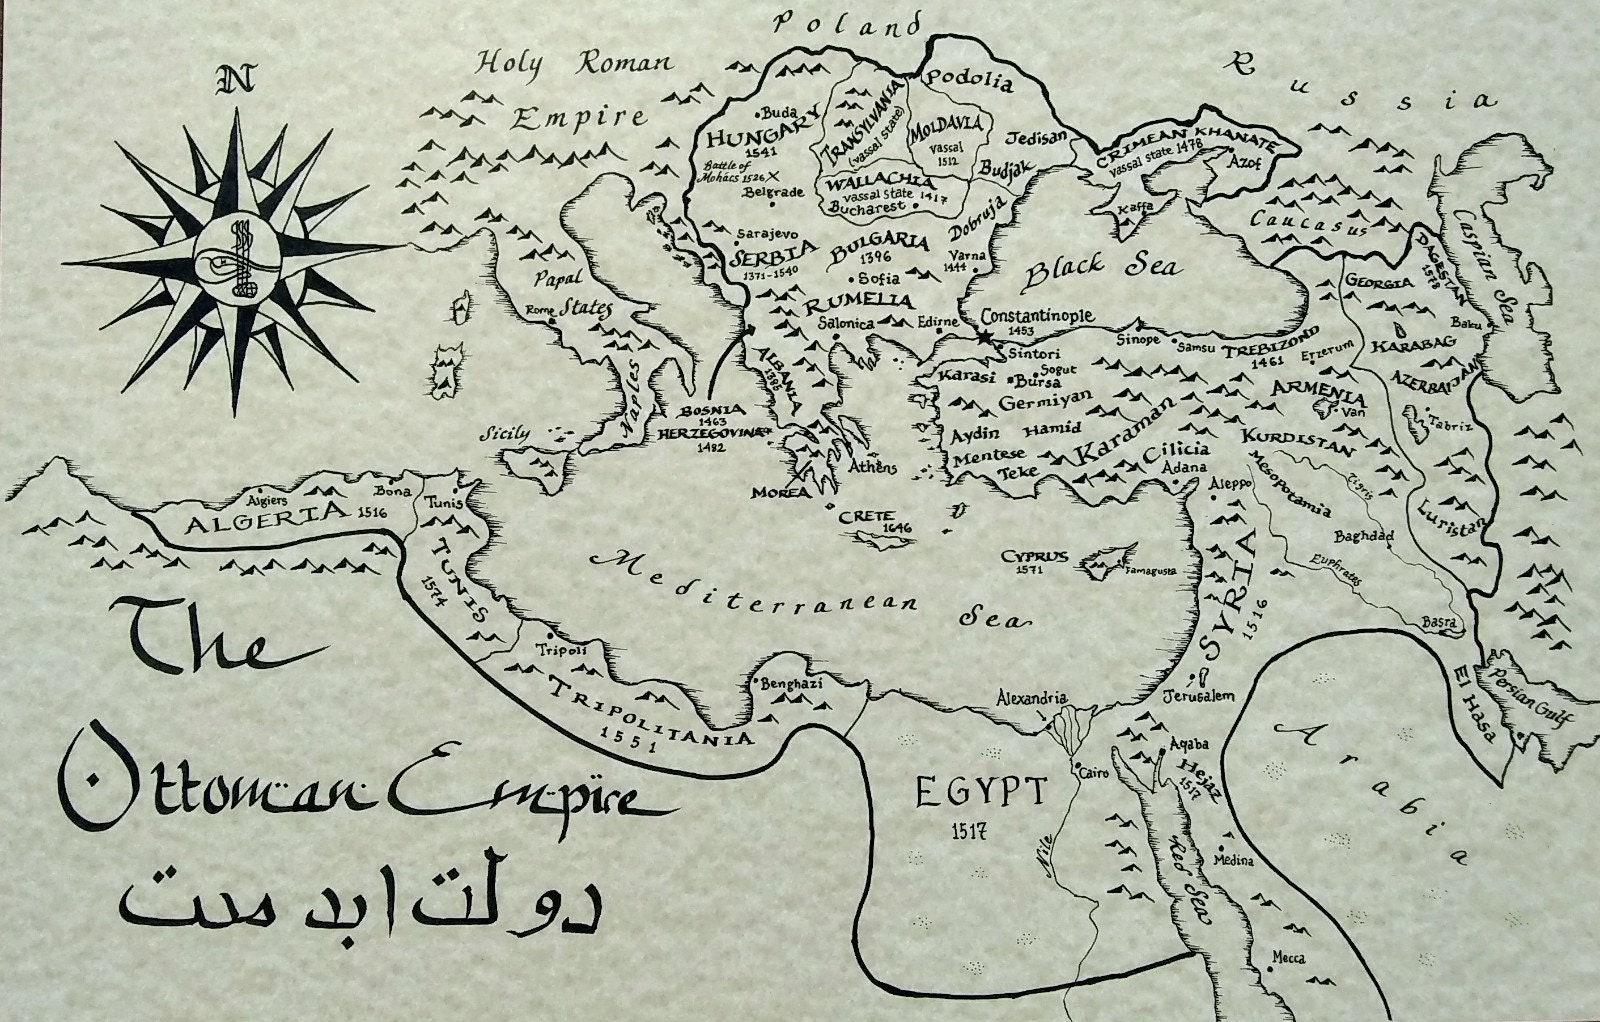 Poland
Holy Roman
Empire
Russia
N
Podolia
Buda
HUNGARY
1541
Battle of
Mohács 1526 X
Belgrade
TRANSYLVANIA
(vassal state)
MOLDAVIA
vassal
1512
Jedisan
Budjak
CRIMEAN KHANATE
vassal state 1478
Azof
Kaffa
WALLACHIA
vassal state 1417
Bucharest
Dobruja
Caucasus
Caspian Sea
DAGESTAN
1578
Sarajevo
SERBIA
1371-1540
BULGARIA
1396
Sofia
Varna
1444
Black Sea
GEORGIA
Papal
States
Rome
RUMELIA
Salonica
Edirne
Constantinople
1453
Sinope
Samsu
TREBIZOND
1461
Erzerum
Baku
KARABAG
AZERBAIJAN
ALBANIA
1385
Sintori
Karasi
Bursa
Sogut
Germiyan
ARMENIA
Van
Tabriz
Naples
BOSNIA
1463
HERZEGOVINA
1482
Sicily
Aydin
Hamid
Karaman
Mentese
Teke
Cilicia
Adana
KURDISTAN
Athens
MOREA
Aleppo
Mesopotamia
Tigris
Luristan
Algiers
Bona
Tunis
ALGERIA 1516
CRETE
1646
Baghdad
Mediterranean Sea
CYPRUS
1571
Famagusta
SYRIA
1516
Euphrates
Basra
TUNIS
1574
Tripoli
The
Benghazi
TRIPOLITANIA
1551
Alexandria
Jerusalem
El Hasa
Persian Gulf
Arabia
Ottoman Empire
Cairo
Aqaba
Hejaz
1517
EGYPT
1517
Nile
Red Sea
Medina
Mecca
دولت ابد مدت